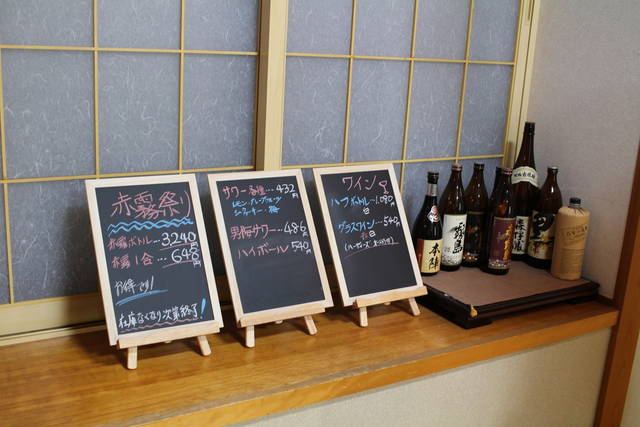 赤霧祭り
赤霧ボトル…3,240円
赤霧1合…648円
お得です!
在庫なくなり次第終了!
サワー各種…432円
レモン・グレープフルーツ
シークァーサー・梅
男梅サワー…486円
ハイボール 540円
ワイン
ハーフボトル…1,080円
グラスワイン…540円
本陣
霧島